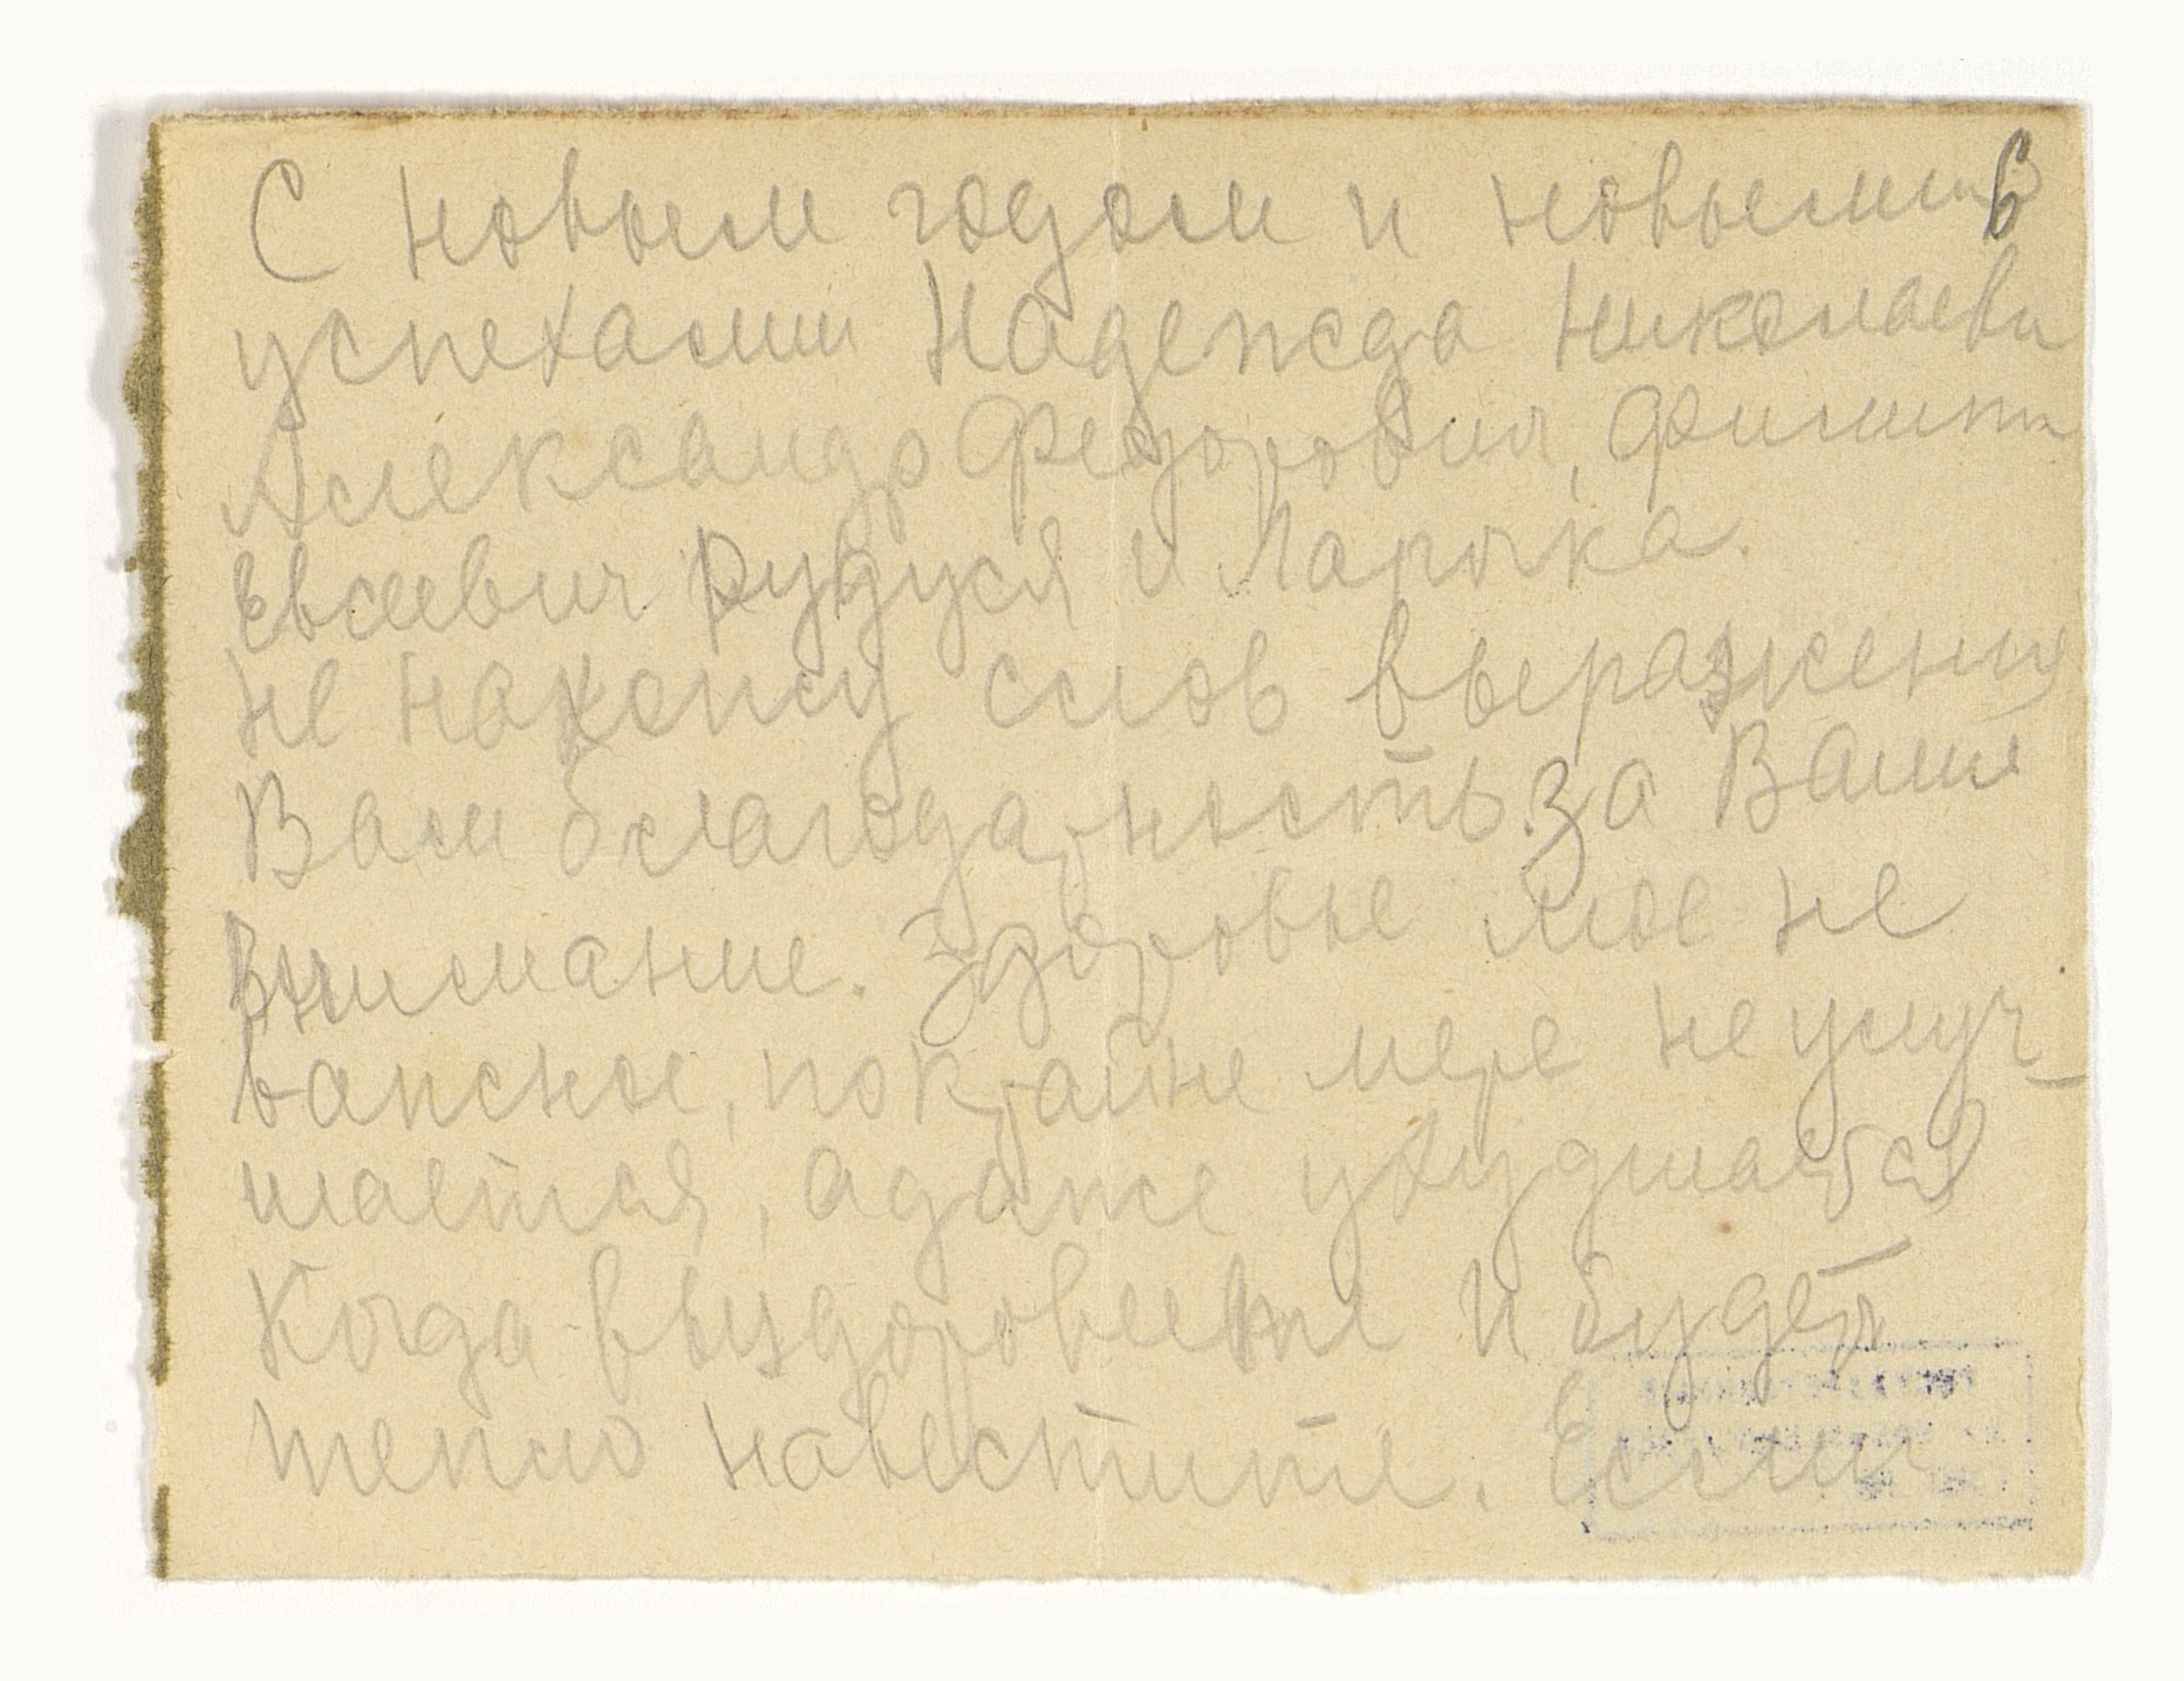 С новым годом и новыми 6
успехами Надежда Николаевн
Александр Федорович, Филипп
Евсеевич Рудуся и Ларочка.
не нахожу слов выражения
Вам благодарность. за Ваше
внимание. Здоровье мое не
важное, по крайне мере не улуч-
шается, а даже ухудшается
Когда выздоровеете и будет
тепло навестите. Если